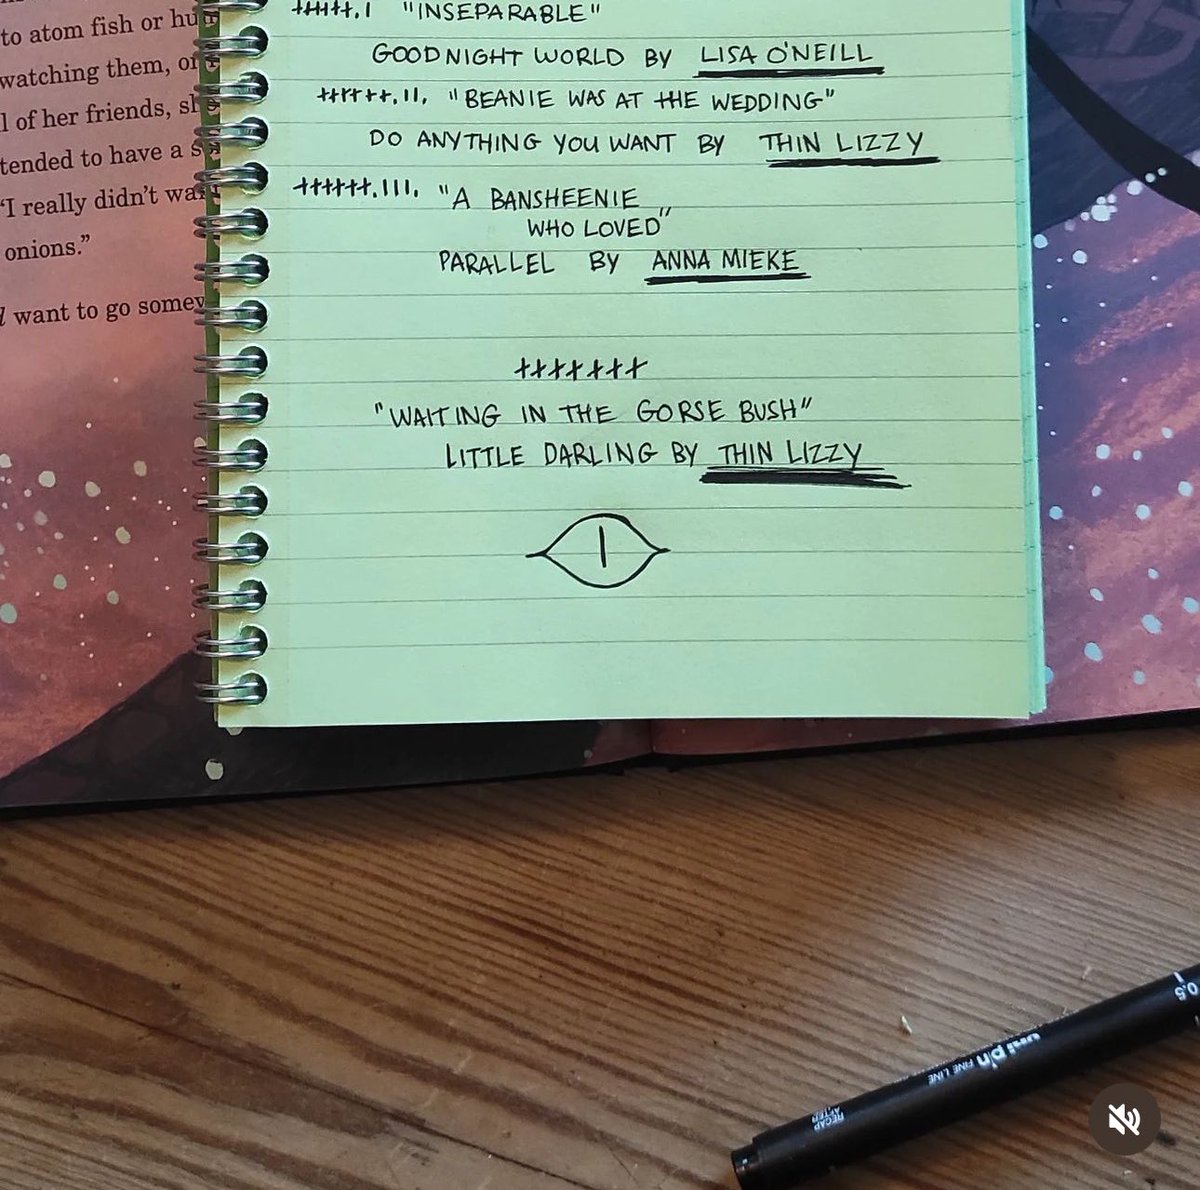 to atom fish or hu
watching them, or
l of her friends, sh
tended to have a s
"I really didn't wa
onions."
want to go somew
++++++.I "INSEPARABLE"
GOODNIGHT WORLD BY LISA O'NEILL
++++++.II. "BEANIE WAS AT THE WEDDING"
DO ANYTHING YOU WANT BY THIN LIZZY
++++++.III. "A BANSHEENIE
WHO LOVED"
PARALLEL BY ANNA MIEKE
+++++++
"WAITING IN THE GORSE BUSH"
LITTLE DARLING BY THIN LIZZY
0.5
uni pin FINE LINE
RECAP
AFTER